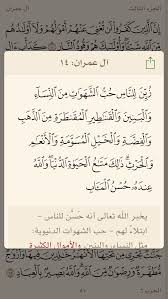 الجزء الثالث
آل عمران
إِنَّ ٱلَّذِينَ كَفَرُوا۟ لَن تُغْنِىَ عَنْهُمْ أَمْوَٰلُهُمْ وَلَآ أَوْلَٰدُهُم
آل عمران: ١٤
زُيِّنَ لِلنَّاسِ حُبُّ ٱلشَّهَوَٰتِ مِنَ ٱلنِّسَآءِ
وَٱلْبَنِينَ وَٱلْقَنَٰطِيرِ ٱلْمُقَنطَرَةِ مِنَ ٱلذَّهَبِ
وَٱلْفِضَّةِ وَٱلْخَيْلِ ٱلْمُسَوَّمَةِ وَٱلْأَنْعَٰمِ
وَٱلْحَرْثِ ذَٰلِكَ مَتَٰعُ ٱلْحَيَوٰةِ ٱلدُّنْيَا وَٱللَّهُ
عِندَهُۥ حُسْنُ ٱلْمَـَٔابِ
يخبر الله تعالى أنه حسَّن للناس -
ابتلاءً لهم - حب الشهوات الدنيوية:
مثل النساء والبنين والأموال الكثيرة
٥١